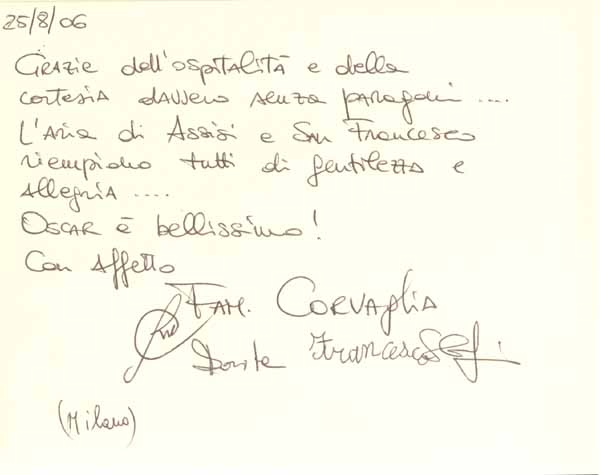 25/8/06
GRAZIE dell'ospitalità e della
cortesia davvero senza paragoni ....
L'aria di Assisi e San Francesco
riempiono tutti di gentilezza e
allegria ....
OSCAR è bellissimo!
Con affetto
FAM. CORVAGLIA
Francesco
(Milano)